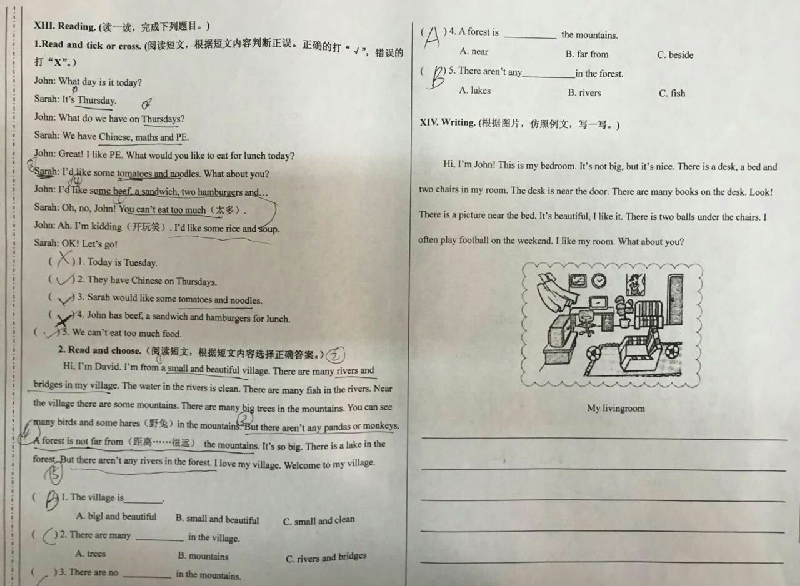 XIII. Reading. (读一读，完成下列题目。)
1.Read and tick or cross. (阅读短文，根据短文内容判断正误。正确的打 "√"，错误的
打 "X"。)
John: What day is it today?
Sarah: It's Thursday.
John: What do we have on Thursdays?
Sarah: We have Chinese, maths and PE.
John: Great! I like PE. What would you like to eat for lunch today?
Sarah: I'd like some tomatoes and noodles. What about you?
John: I'd like some beef, a sandwich, two hamburgers and…
Sarah: Oh, no, John! You can't eat too much（太多）.
John: Ah. I'm kidding（开玩笑）. I'd like some rice and soup.
Sarah: OK! Let's go!
( X ) 1. Today is Tuesday.
( √ ) 2. They have Chinese on Thursdays.
( √ ) 3. Sarah would like some tomatoes and noodles.
( X ) 4. John has beef, a sandwich and hamburgers for lunch.
( √ ) 5. We can't eat too much food.
2. Read and choose.（阅读短文，根据短文内容选择正确答案。）
Hi, I'm David. I'm from a small and beautiful village. There are many rivers and
bridges in my village. The water in the rivers is clean. There are many fish in the rivers. Near
the village there are some mountains. There are many big trees in the mountains. You can see
many birds and some hares（野兔）in the mountains. But there aren't any pandas or monkeys.
A forest is not far from（距离……很远） the mountains. It's so big. There is a lake in the
forest. But there aren't any rivers in the forest. I love my village. Welcome to my village.
( B ) 1. The village is_______.
A. bigl and beautiful B. small and beautiful C. small and clean
( C ) 2. There are many ________ in the village.
A. trees B. mountains C. rivers and bridges
( ) 3. There are no ________ in the mountains.
( A ) 4. A forest is ________ the mountains.
A. near B. far from C. beside
( B ) 5. There aren't any________in the forest.
A. lakes B. rivers C. fish
XIV. Writing. (根据图片，仿照例文，写一写。)
Hi, I'm John! This is my bedroom. It's not big, but it's nice. There is a desk, a bed and
two chairs in my room. The desk is near the door. There are many books on the desk. Look!
There is a picture near the bed. It's beautiful, I like it. There is two balls under the chairs. I
often play football on the weekend. I like my room. What about you?
My livingroom